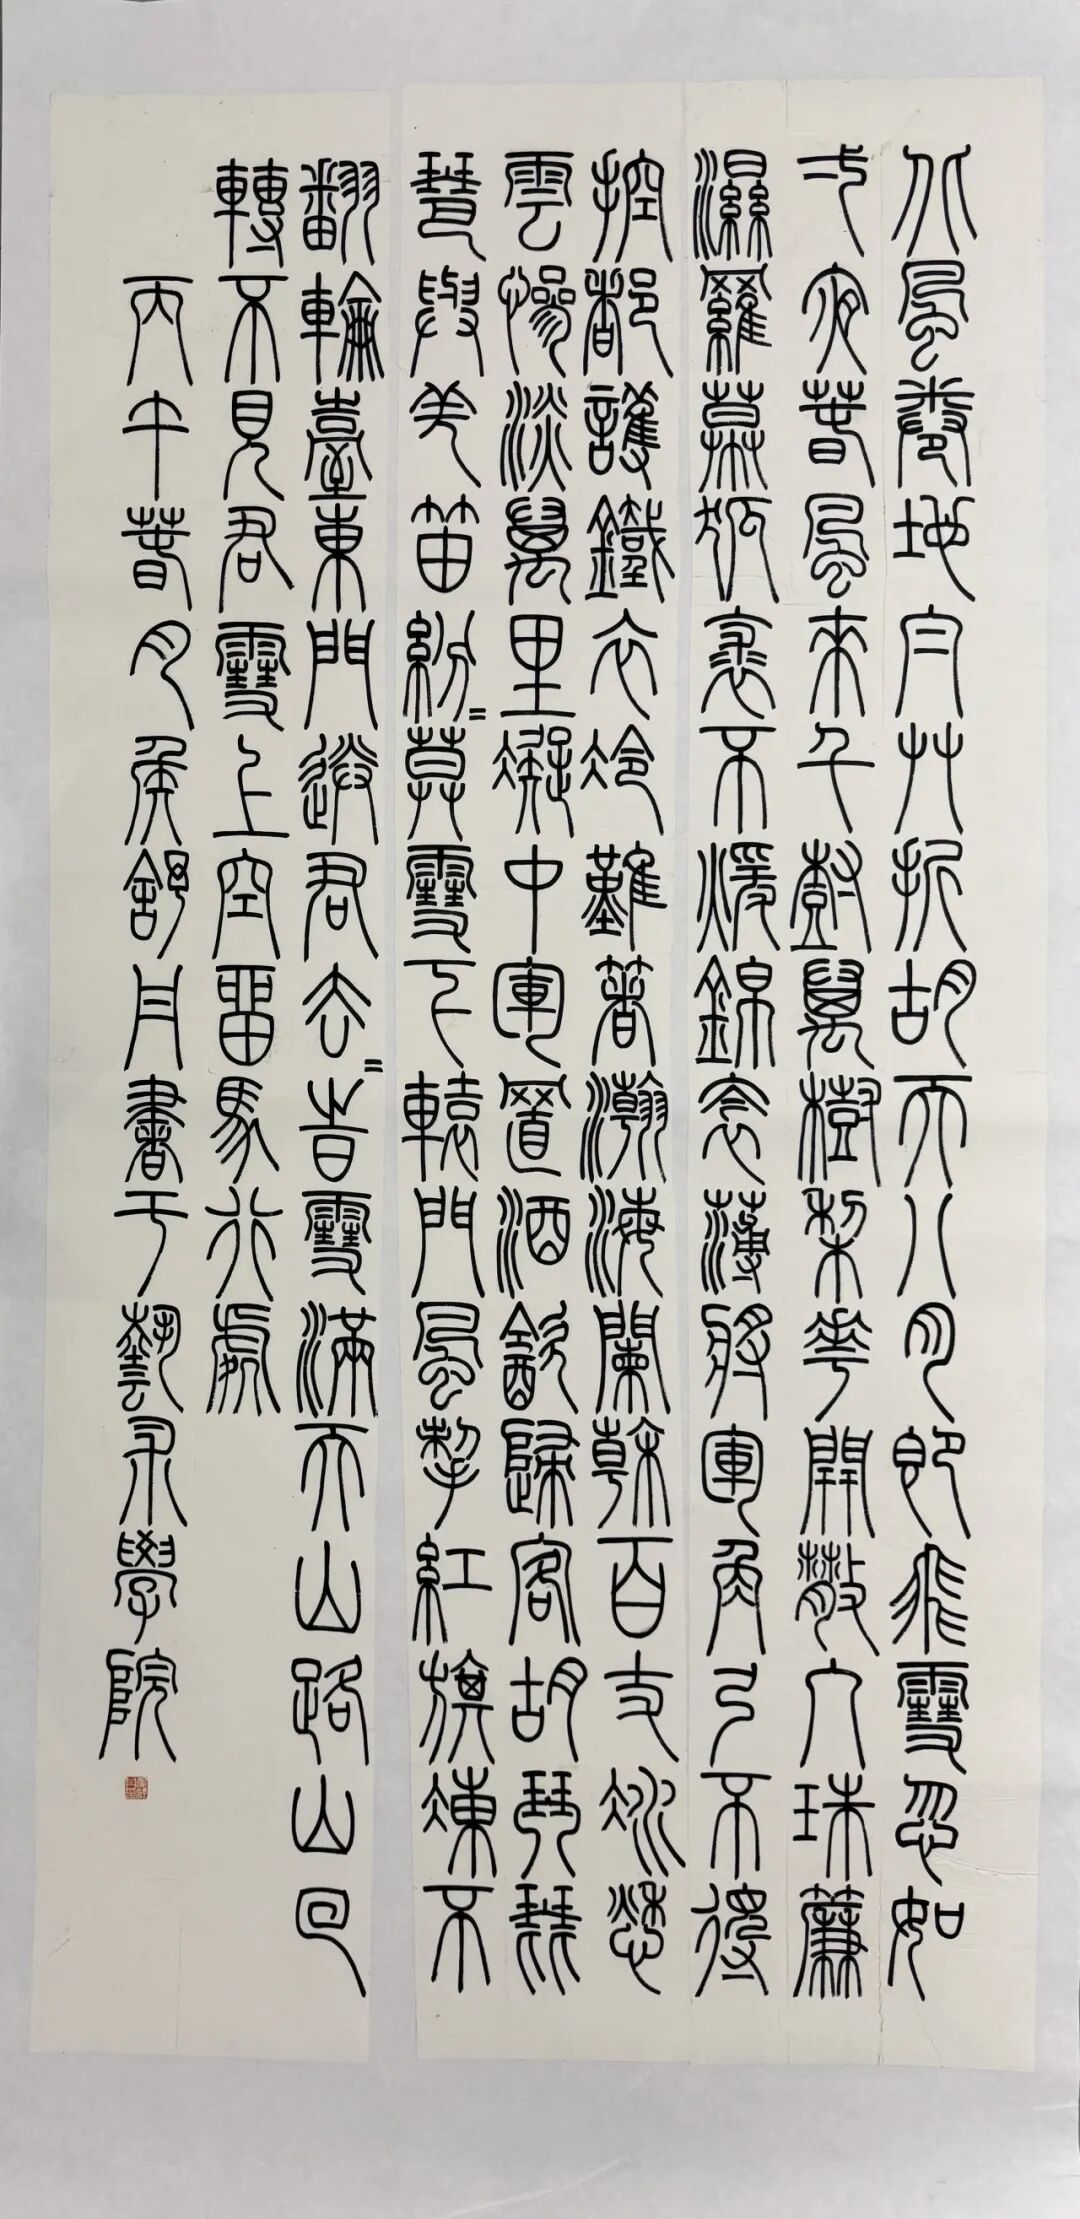 北風卷地白艸折胡天八月即飛雪忽如
弌夜春風來千尌萬樹棃華開散入珠簾
濕羅幕狐裘不煖錦衾薄將軍角弓不得
控都護鐵衣冷難著瀚海闌榦百丈冰愁
雲慘淡萬里凝中軍置酒飲歸客胡琴琵
琶與羌笛紛〻莫雪下轅門風掣紅旗凍不
翻輪臺東門送君去〻旹雪滿天山路山回
轉不見君雪上空畱馬行處
丙午春月侯舒月書于藝朮學院